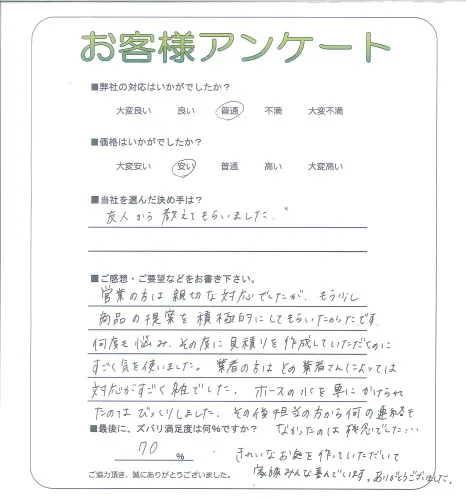 お客様アンケート
■弊社の対応はいかがでしたか？
大変良い　良い　普通　不満　大変不満
■価格はいかがでしたか？
大変安い　安い　普通　高い　大変高い
■当社を選んだ決め手は？
友人から教えてもらいました。
■ご感想・ご要望などをお書き下さい。
営業の方は親切な対応でしたが、もう少し
商品の提案を積極的にしてもらいたかったです。
何度も悩み、その度に見積りを作成していただくのに
すごく気を使いました。業者の方はどの業者さんによっては
対応がすごく雑でした。ホースの水を車にかけられ
たのはびっくりしました。その後担当の方から何の連絡も
なかったのは残念でした…
■最後に、ズバリ満足度は何%ですか？
70 %
きれいなお庭を作っていただいて
家族みんな喜んでいます。ありがとうございました。
ご協力頂き、誠にありがとうございました。